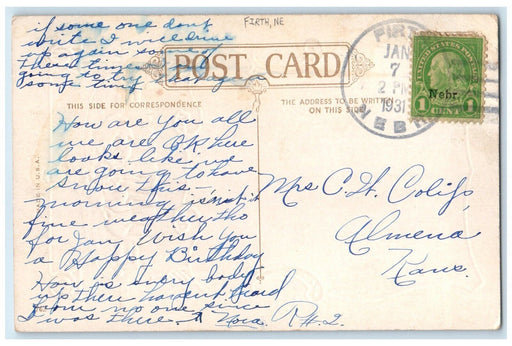 if some one dont
write I will drive
up again some of
these times
going to try that
some time
FIRTH, NE
POST CARD
THIS SIDE FOR CORRESPONDENCE
THE ADDRESS TO BE WRITTEN
ON THIS SIDE
FIRTH
JAN
7
2 PM
1931
NEBR
UNITED STATES POSTAGE
Nebr.
1 CENT 1
MADE IN U.S.A.
How are you all
we are OK here
looks like we
are going to have
snow this
morning isn't it
fine weather tho
for Jan Wish you
a Happy Birthday
How is every body
up there havent heard
from no one since
I was there. Nora
Mrs C. H.
Almena
Kans.
R#2.